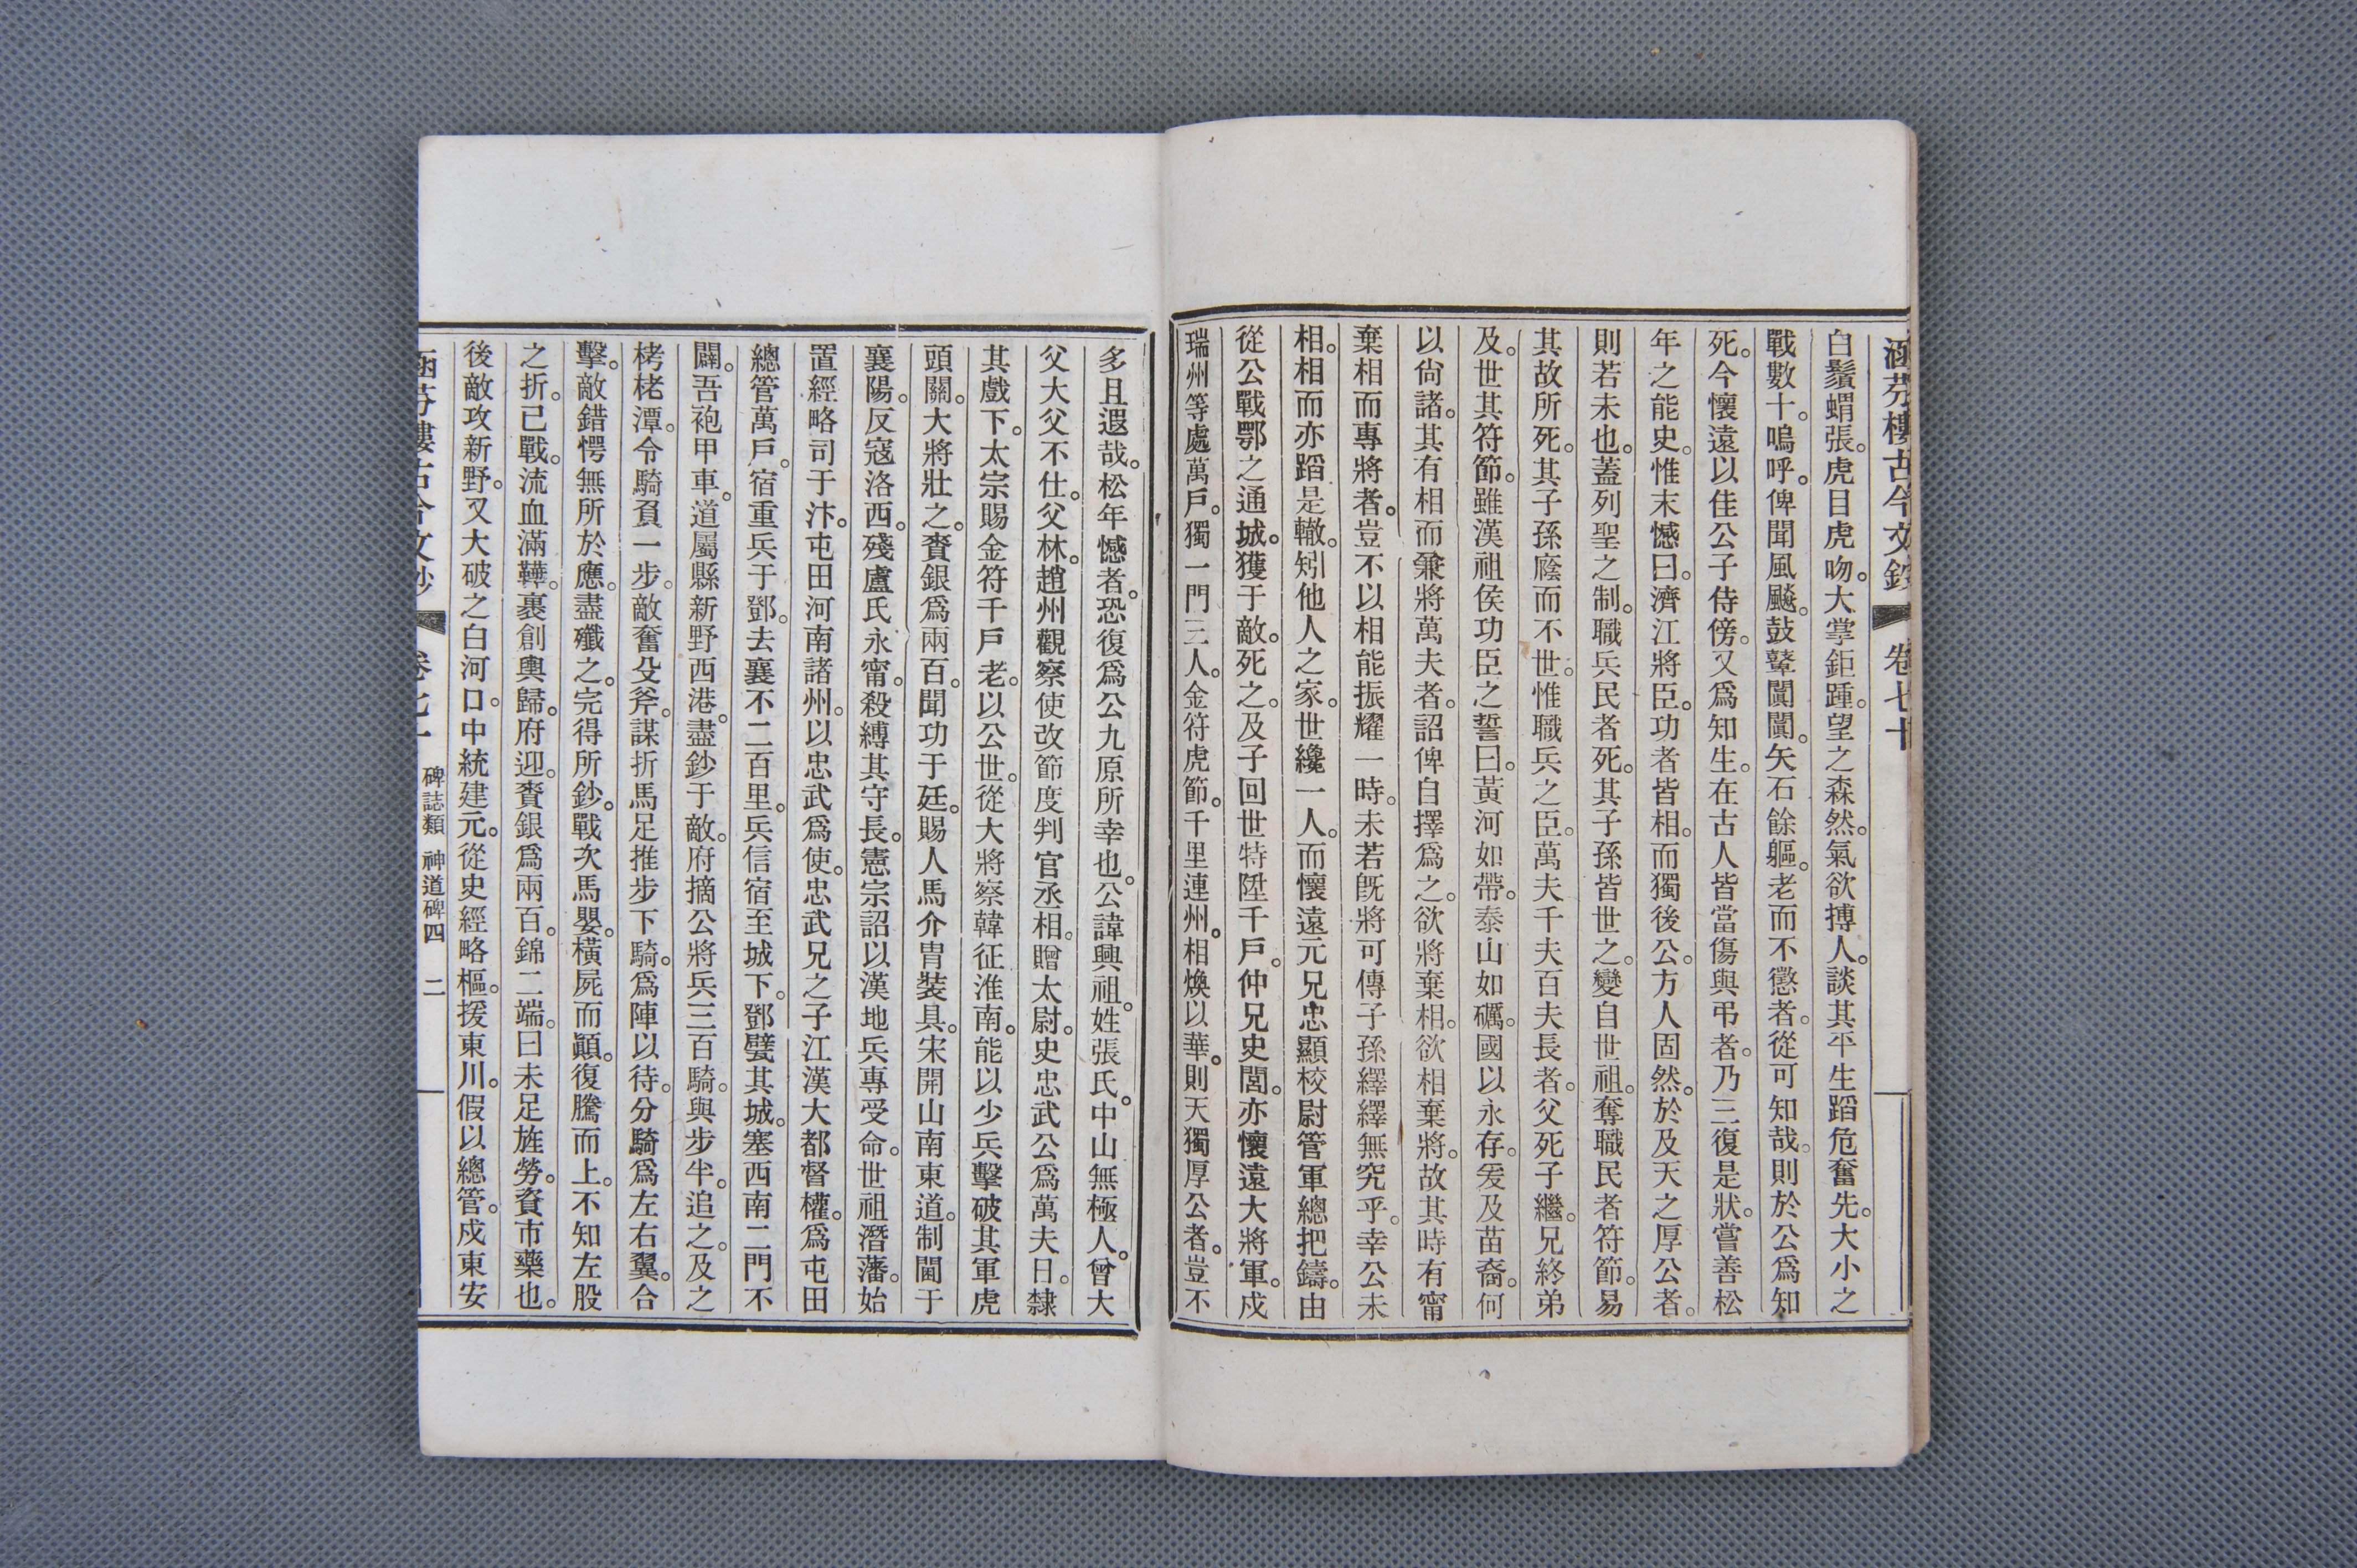 涵芬樓古今文鈔 卷七十
白鬚蝟張。虎目虎吻。大掌鉅踵。望之森然。氣欲搏人。談其平生蹈危奮先。大小之
戰數十。嗚呼。俾聞風飈。鼓鼙闐闐。矢石餘軀。老而不懲者。從可知哉。則於公爲知
死。今懷遠以佳公子侍傍。又爲知生。在古人皆當傷與弔者。乃三復是狀。嘗善松
年之能史。惟末憾曰。濟江將臣。功者皆相。而獨後公。方人固然。於及天之厚公者。
則若未也。蓋列聖之制。職兵民者死。其子孫皆世之。變自世祖。奪職民者符節。易
其故所死。其子孫廕而不世。惟職兵之臣。萬夫千夫百夫長者。父死子繼。兄終弟
及。世其符節。雖漢祖侯功臣之誓曰。黃河如帶。泰山如礪。國以永存。爰及苗裔。何
以尙諸。其有相而兼將萬夫者。詔俾自擇爲之。欲將棄相。欲相棄將。故其時有甯
棄相而專將者。豈不以相能振耀一時。未若旣將可傳子孫繹繹無究乎。幸公未
相。相而亦蹈是轍。矧他人之家。世纔一人。而懷遠元兄忠顯校尉管軍總把鑄。由
從公戰鄂之通城。獲于敵。死之。及子回世特陞千戶。仲兄史閭。亦懷遠大將軍。戍
瑞州等處萬戶。獨一門三人。金符虎節。千里連州。相煥以華。則天獨厚公者。豈不
多且遐哉。松年憾者。恐復爲公九原所幸也。公諱興祖。姓張氏。中山無極人。曾大
父大父不仕。父林。趙州觀察使改節度判官丞相。贈太尉。史忠武公爲萬夫日。隸
其戲下。太宗賜金符千戶。老。以公世。從大將察韓征淮南。能以少兵擊破其軍虎
頭關。大將壯之。賚銀爲兩百。聞功于廷。賜人馬介冑裝具。宋開山南東道。制閫于
襄陽。反寇洛西。殘盧氏永甯。殺縛其守長。憲宗詔以漢地兵專受命。世祖潛藩。始
置經略司于汴。屯田河南諸州。以忠武爲使。忠武兄之子江漢大都督權。爲屯田
總管萬戶。宿重兵于鄧。去襄不二百里。兵信宿至城下。鄧甓其城。塞西南二門不
闢。吾袍甲車。道屬縣新野西港。盡鈔于敵。府摘公將兵三百騎。與步半。追之。及之
栲栳潭。令騎負一步。敵奮殳斧。謀折馬足推步下騎。爲陣以待。分騎爲左右翼。合
擊。敵錯愕無所於應。盡殲之。完得所鈔。戰次馬嬰。橫屍而顚。復騰而上。不知左股
之折。已戰。流血滿鞾。裹創輿歸。府迎。賚銀爲兩百。錦二端。曰未足旌勞。資市藥也。
後敵攻新野。又大破之白河口。中統建元。從史經略樞。援東川。假以總管。戍東安
涵芬樓古今文鈔 卷七十 碑誌類 神道碑四 二